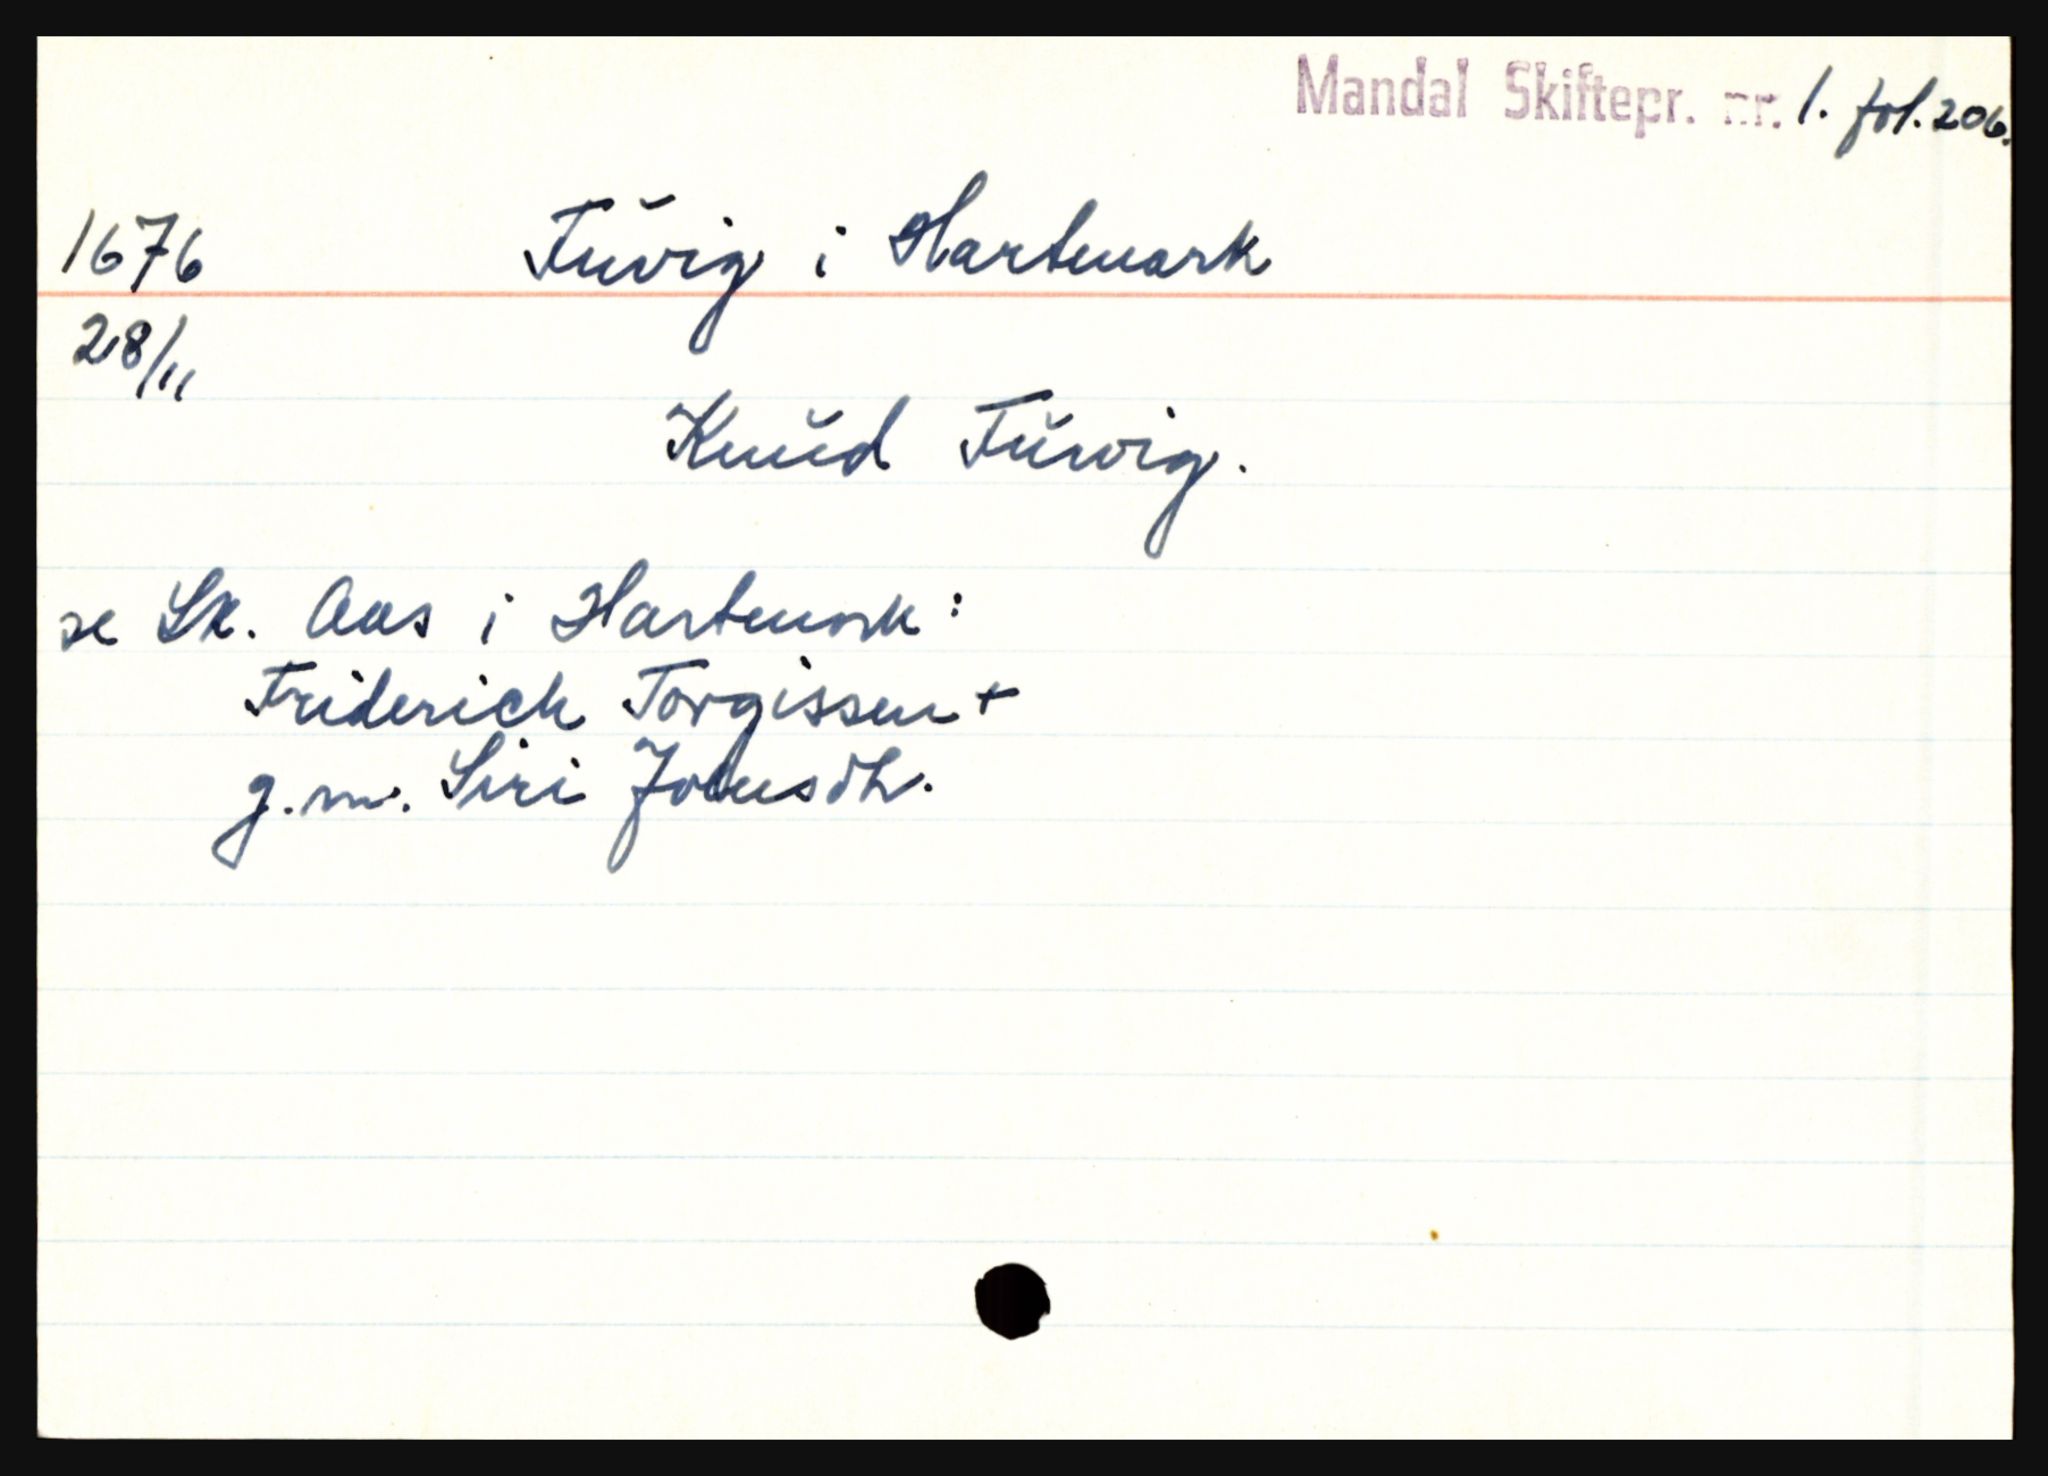 Mandal Skiftepr. nr. 1. fol. 206.
1676 Tŭvig i Hartmark
28/11
Knŭd Tŭvig.
se Sk. Aas i Hartmark:
Friderich Torgissen +
g.m. Siri Joensdtr.